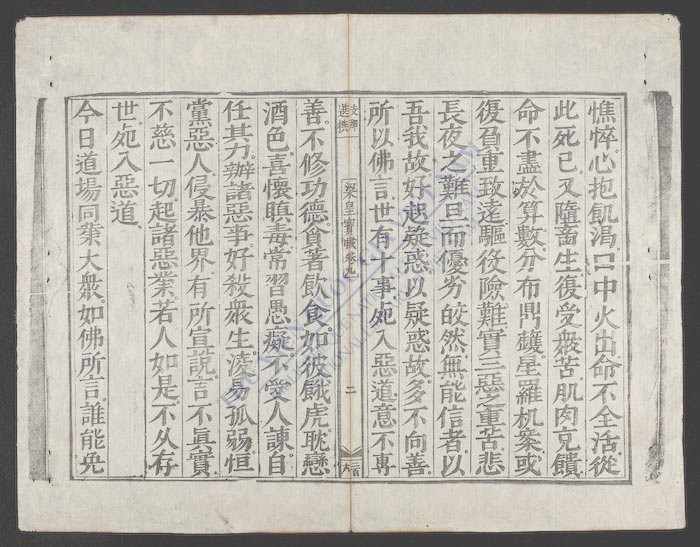 憔悴心抱飢渴口中火出命不全活從
此死已又墮畜生復受衆苦肌肉充饋
命不盡於算數分布鼎鑊星羅机案或
復負重致遠驅役險難實三惡之重苦悲
長夜之難旦而優劣皎然無能信者以
吾我故好起疑惑以疑惑故多不向善
所以佛言世有十事死入惡道意不專
支那
撰述
梁皇寶懺卷九
二
善不修功德貪著飲食如彼餓虎耽戀
酒色喜懷瞋毒常習愚癡不受人諫自
任其力辦諸惡事好殺衆生淩易孤弱恒
黨惡人侵暴他界有所宣說言不眞實
不慈一切起諸惡業若人如是不久存
世死入惡道
今日道場同業大衆如佛所言誰能免